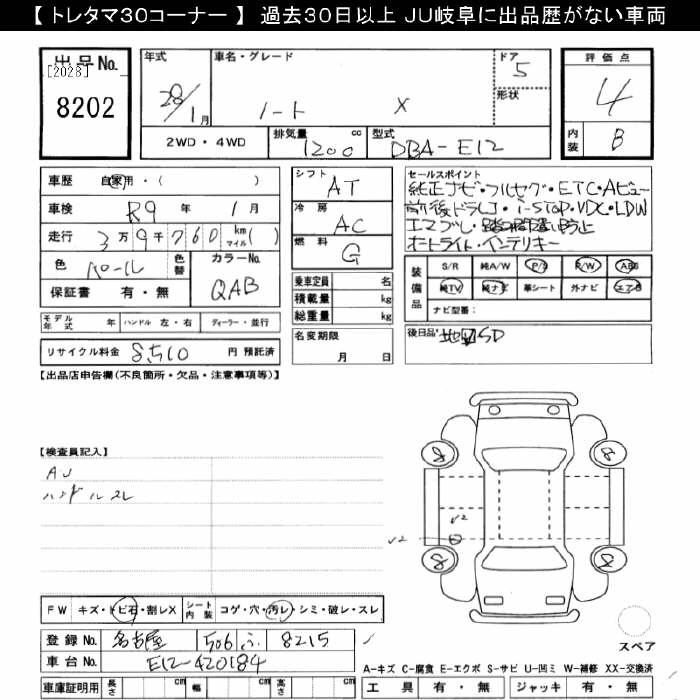 【 トレタマ30コーナー 】 過去30日以上 JU岐阜に出品歴がない車両
出品No. [2028] 8202
年式 28/1月
車名・グレード ノート X
ドア 5
形状
評価点 4
内装 B
2WD・4WD
排気量 1200 cc
型式 DBA-E12
車歴 自家用・( )
車検 R9年 1月
走行 3万9千760 km マイル ( )
色 パール 色替
カラーNo. QAB
保証書 有・無
モデル年式 年 ハンドル 左・右 ディーラー・並行
リサイクル料金 8,510 円 預託済
シフト AT
冷房 AC
燃料 G
乗車定員 名
積載量 kg
総重量 kg
名変期限 月 日
セールスポイント
純正ナビ・フルセグ・ETC・Aビュー
前後ドラレコ・i-STOP・VDC・LDW
エマブレ・踏み間違い防止
オートライト・インテリキー
装備品 S/R 純A/W P/S P/W ABS
純TV 純ナビ 革シート 外ナビ エアB
ナビ型番:
後日品: 地図SD
【出品店申告欄(不良箇所・欠品・注意事項等)】
【検査員記入】
AU
ハンドルスレ
8 8
√2
√2
8 8
FW キズ・トビ石・割レX シート内装 コゲ・穴・汚レ・シミ・破レ・スレ
登録No. 名古屋 506 ふ 8215
車台No. E12-420184
車庫証明用 長さ cm 幅 cm 高さ cm
スペア
A-キズ C-腐食 E-エクボ S-サビ U-凹ミ W-補修 XX-交換済
工具 有・無 ジャッキ 有・無